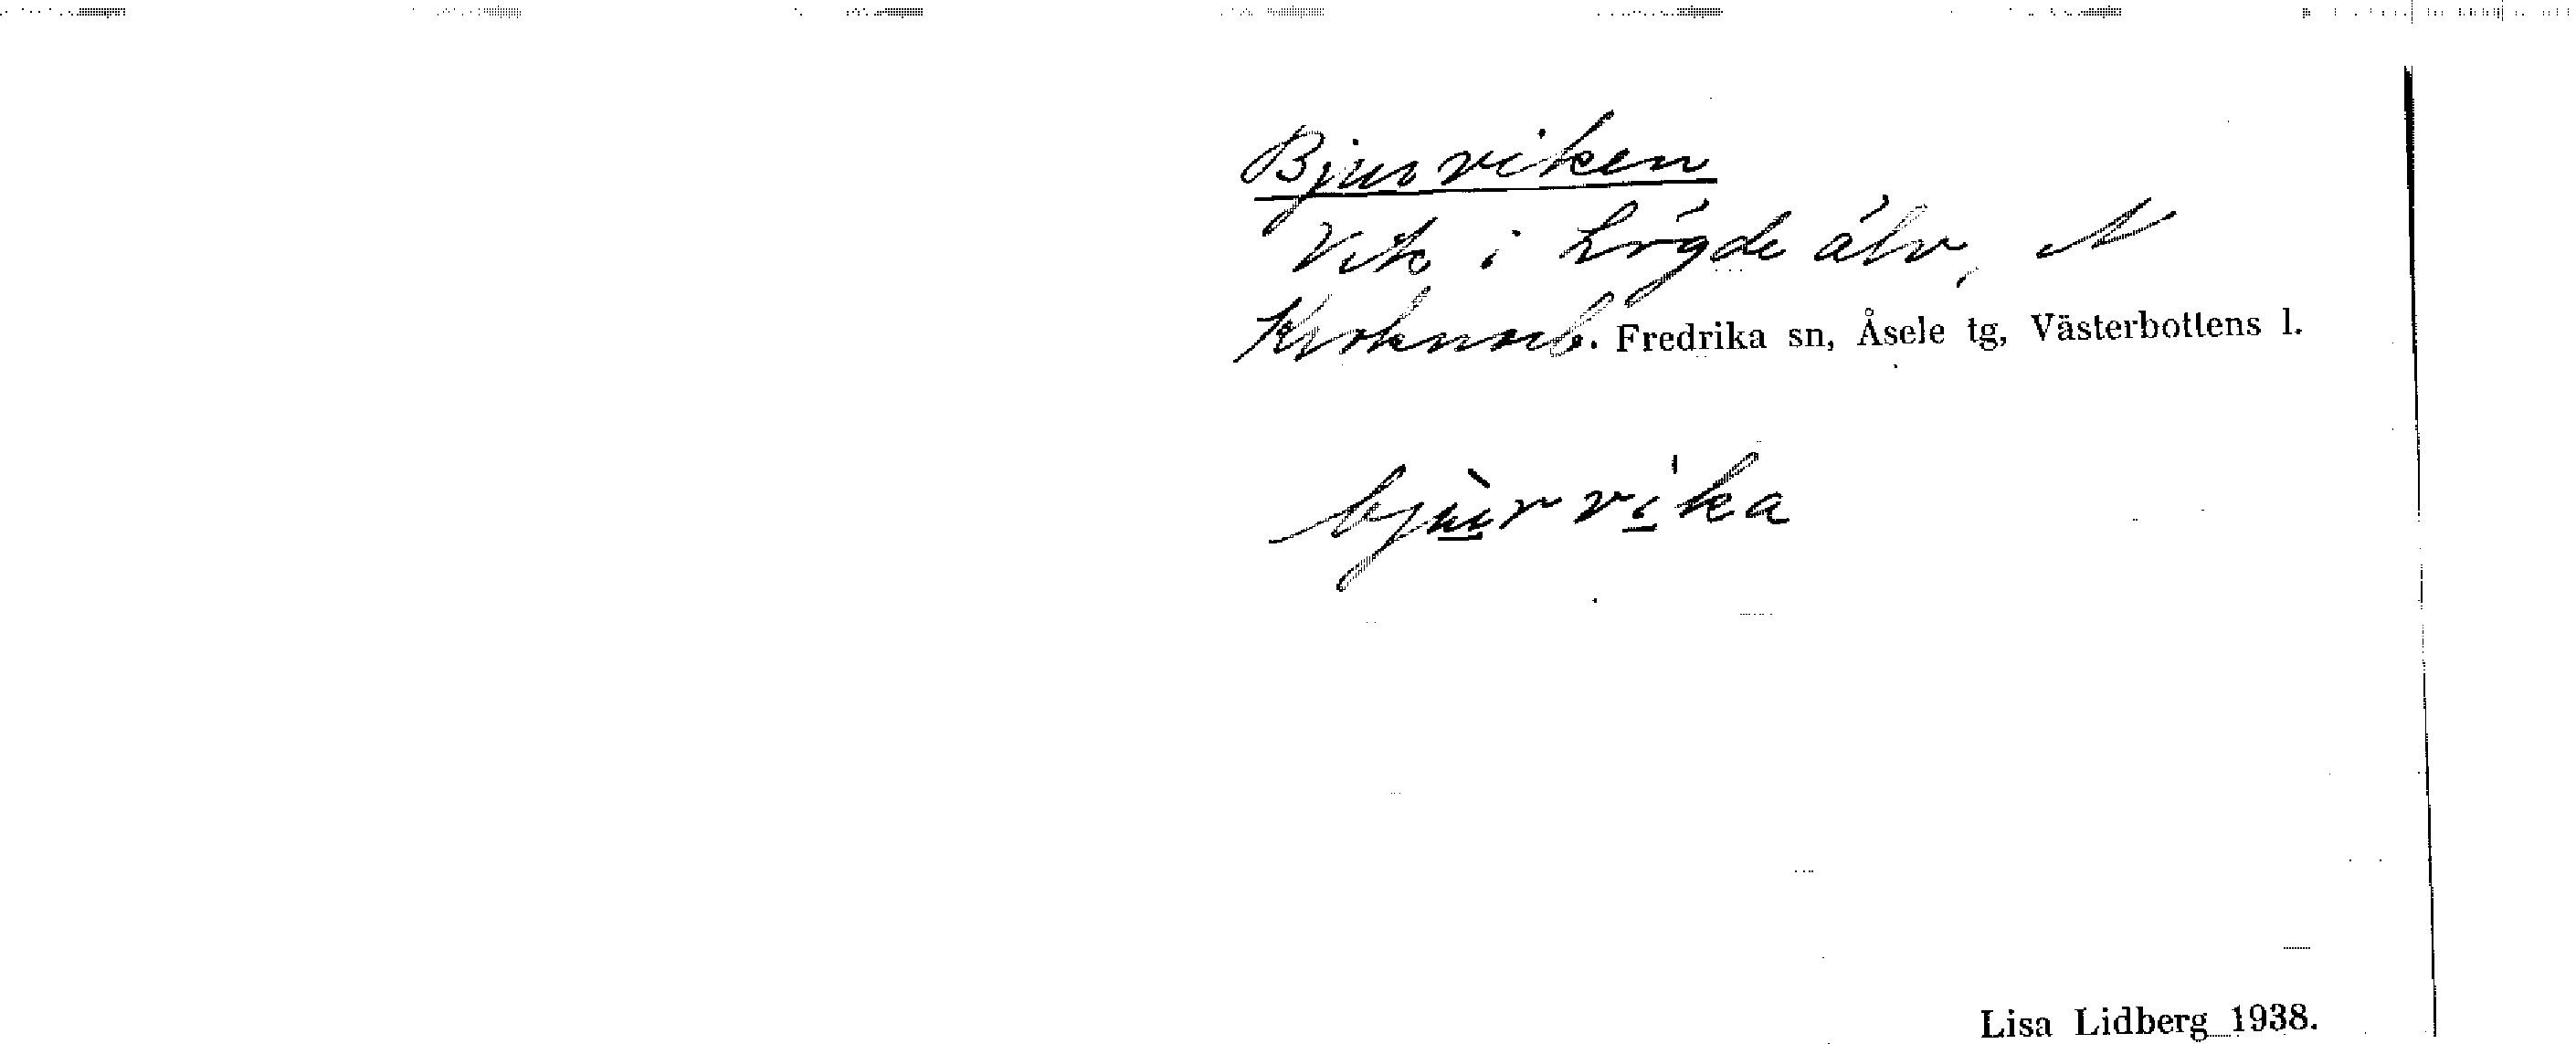 Bjurviken
Vik i Lögde älv, N
Fredrika sn, Åsele tg, Västerbottens l.
bju̱̇̀rvi̱̍ka
Lisa Lidberg 1938.